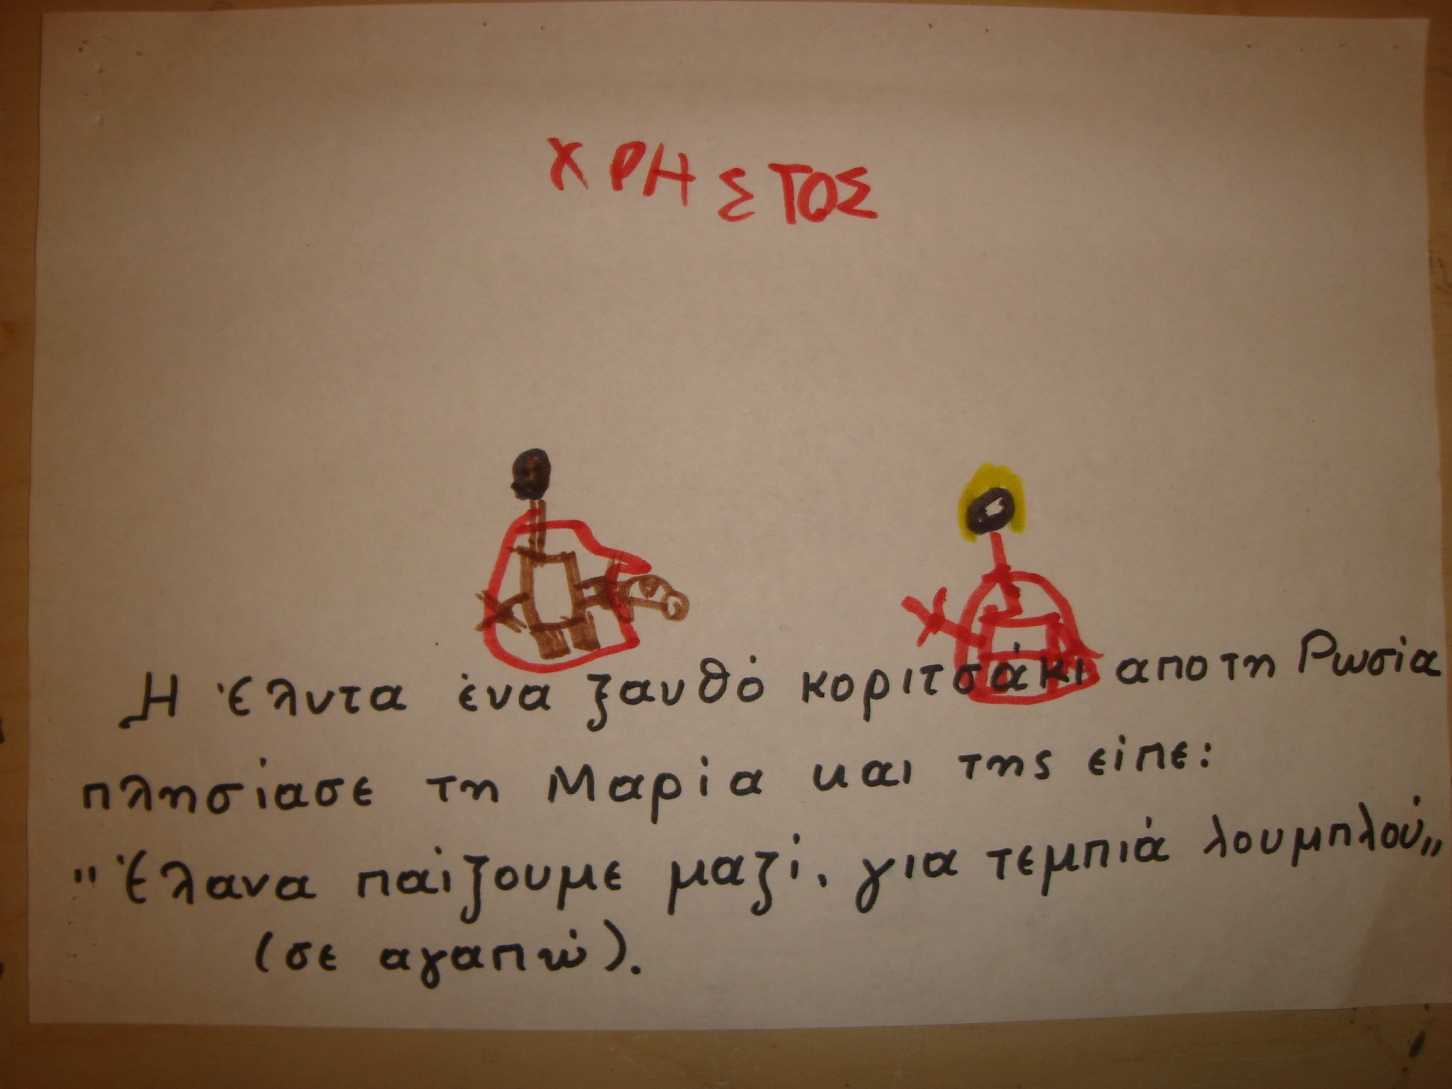 ΧΡΗΣΤΟΣ
Η Έλντα ένα ξανθό κοριτσάκι απο τη Ρωσία
πλησίασε τη Μαρία και της είπε:
"Έλανα παίζουμε μαζί. για τεμπιά λουμπλού„
(σε αγαπώ).